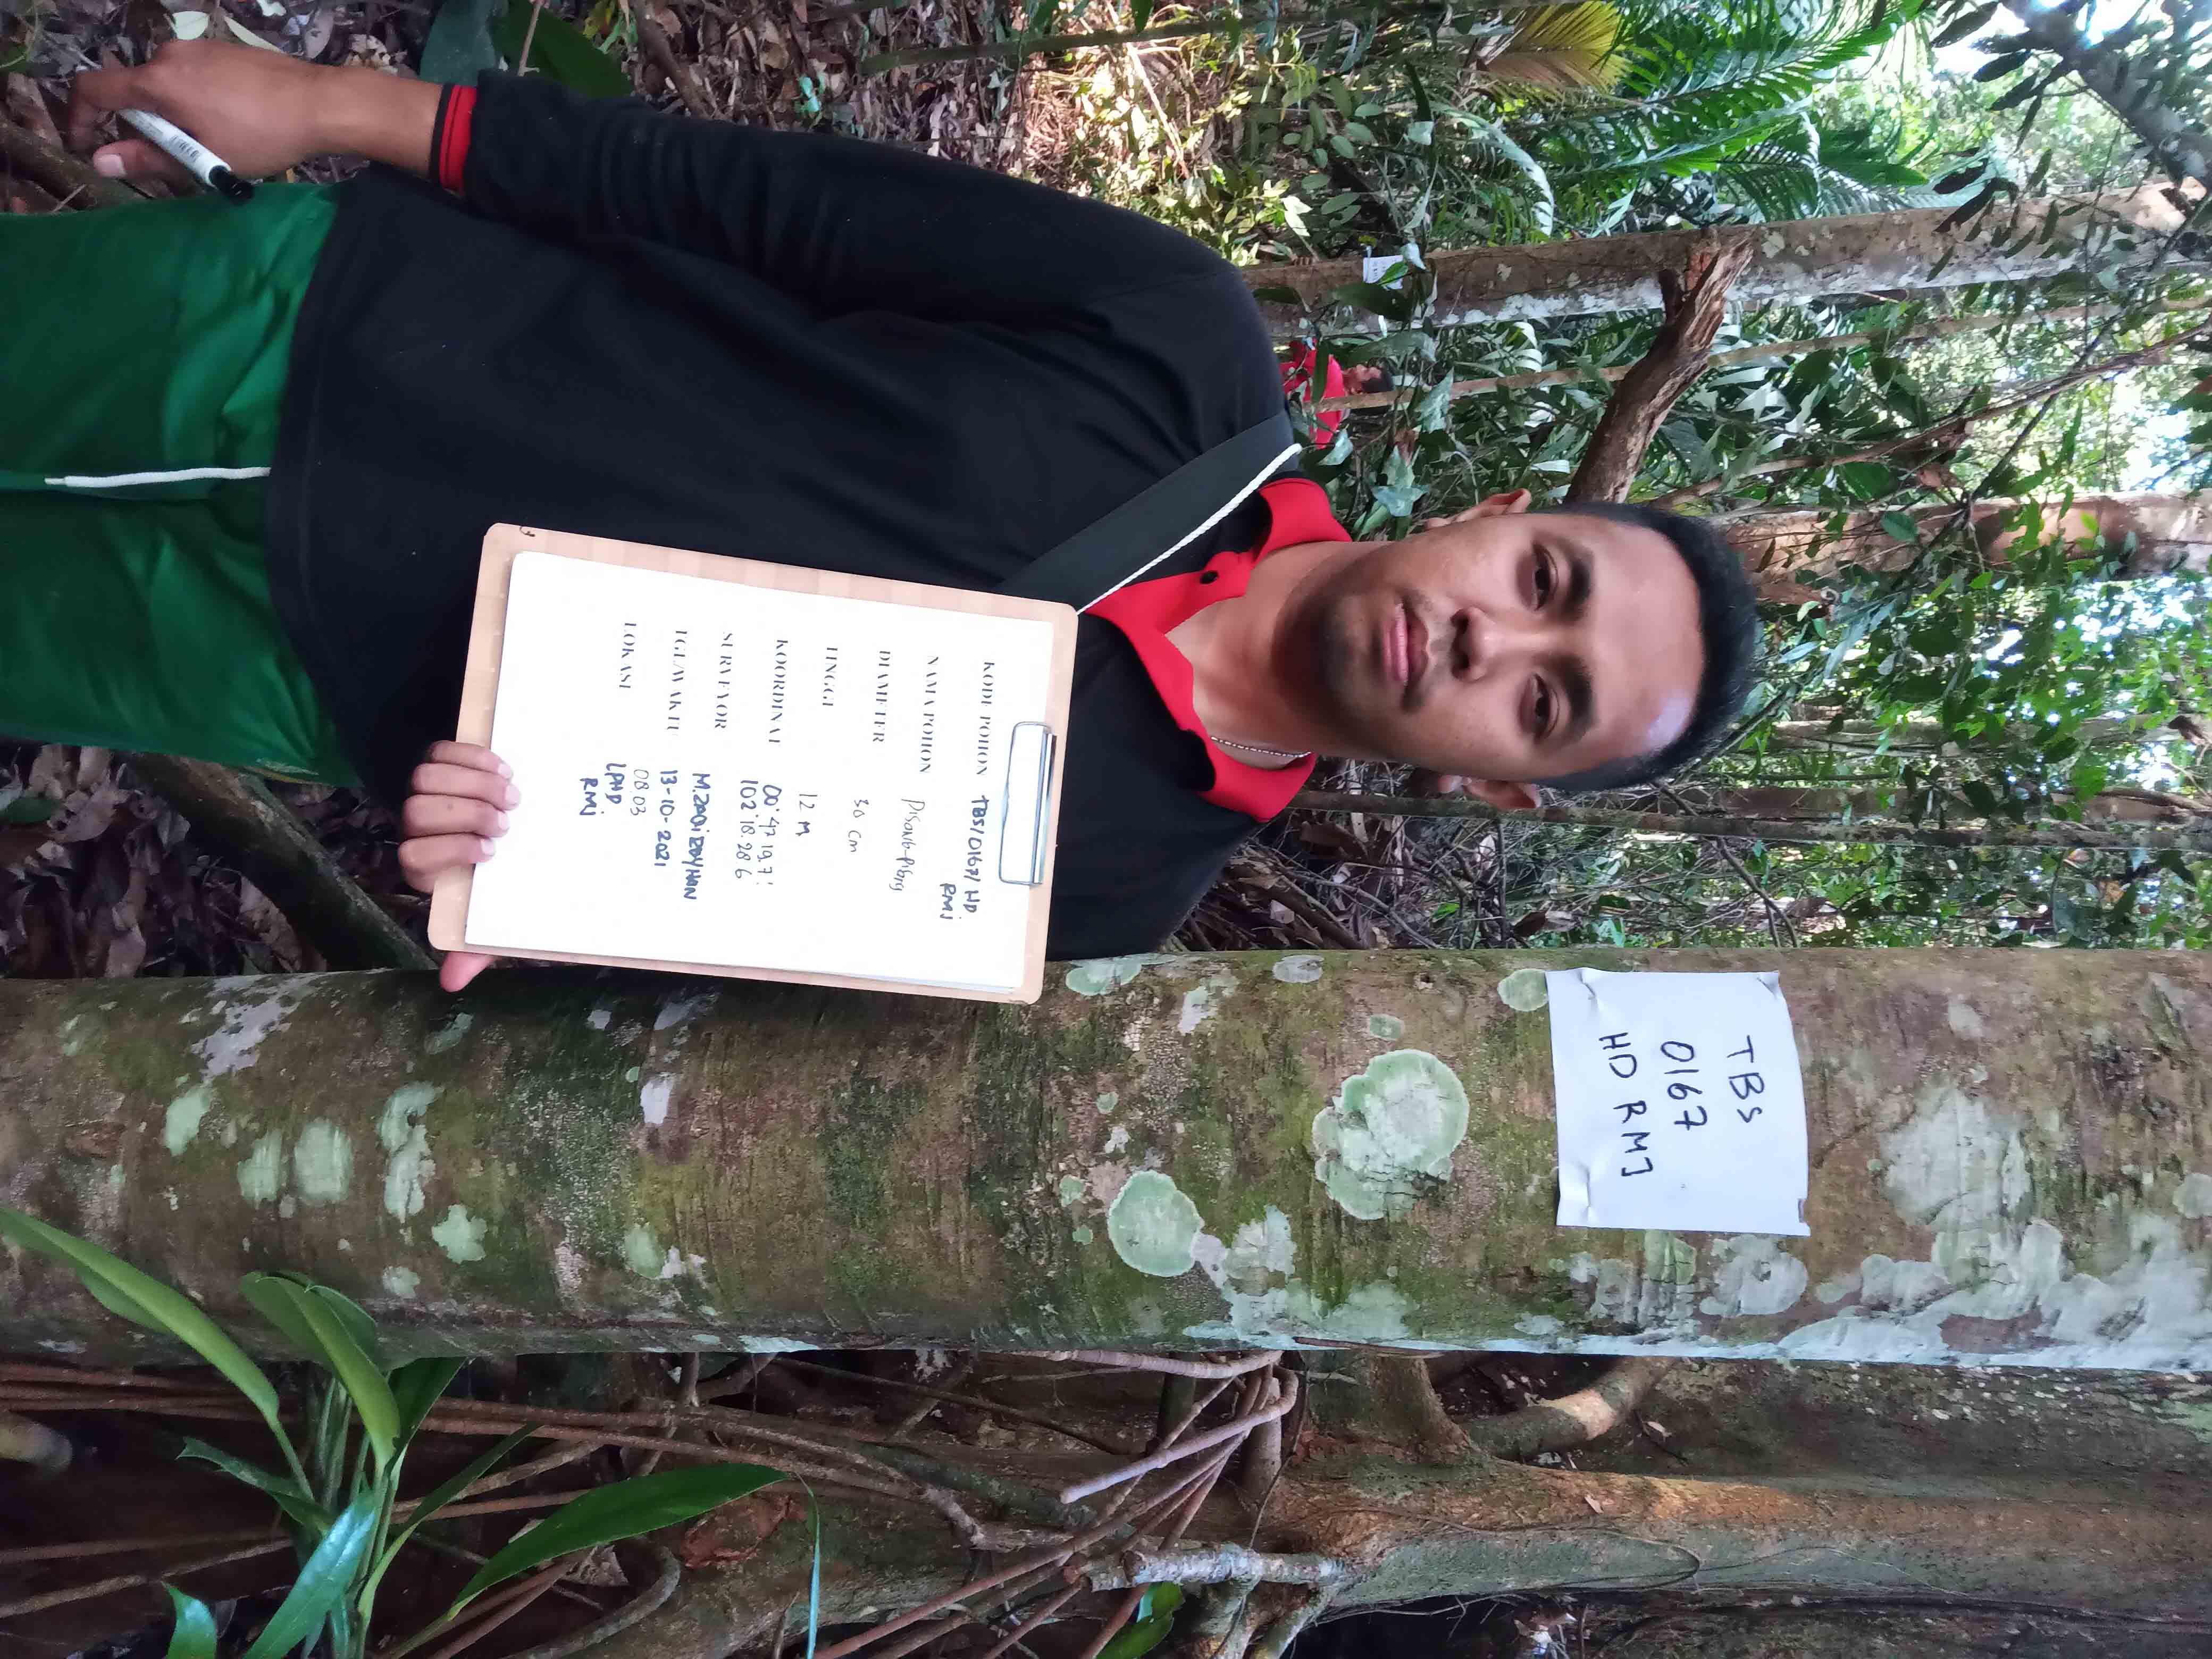 KODE POHON TBS/0167/HD
RMJ
NAMA POHON
DIAMETER 30 cm
TINGGI 12 M
KOORDINAT 00°.47.19,7"
102°.18.28 6
SURVEYOR
TGL/WAKTU 13-10-2021
08 03
LOKASI LPHD
RMJ
TBS
0167
HD RMJ